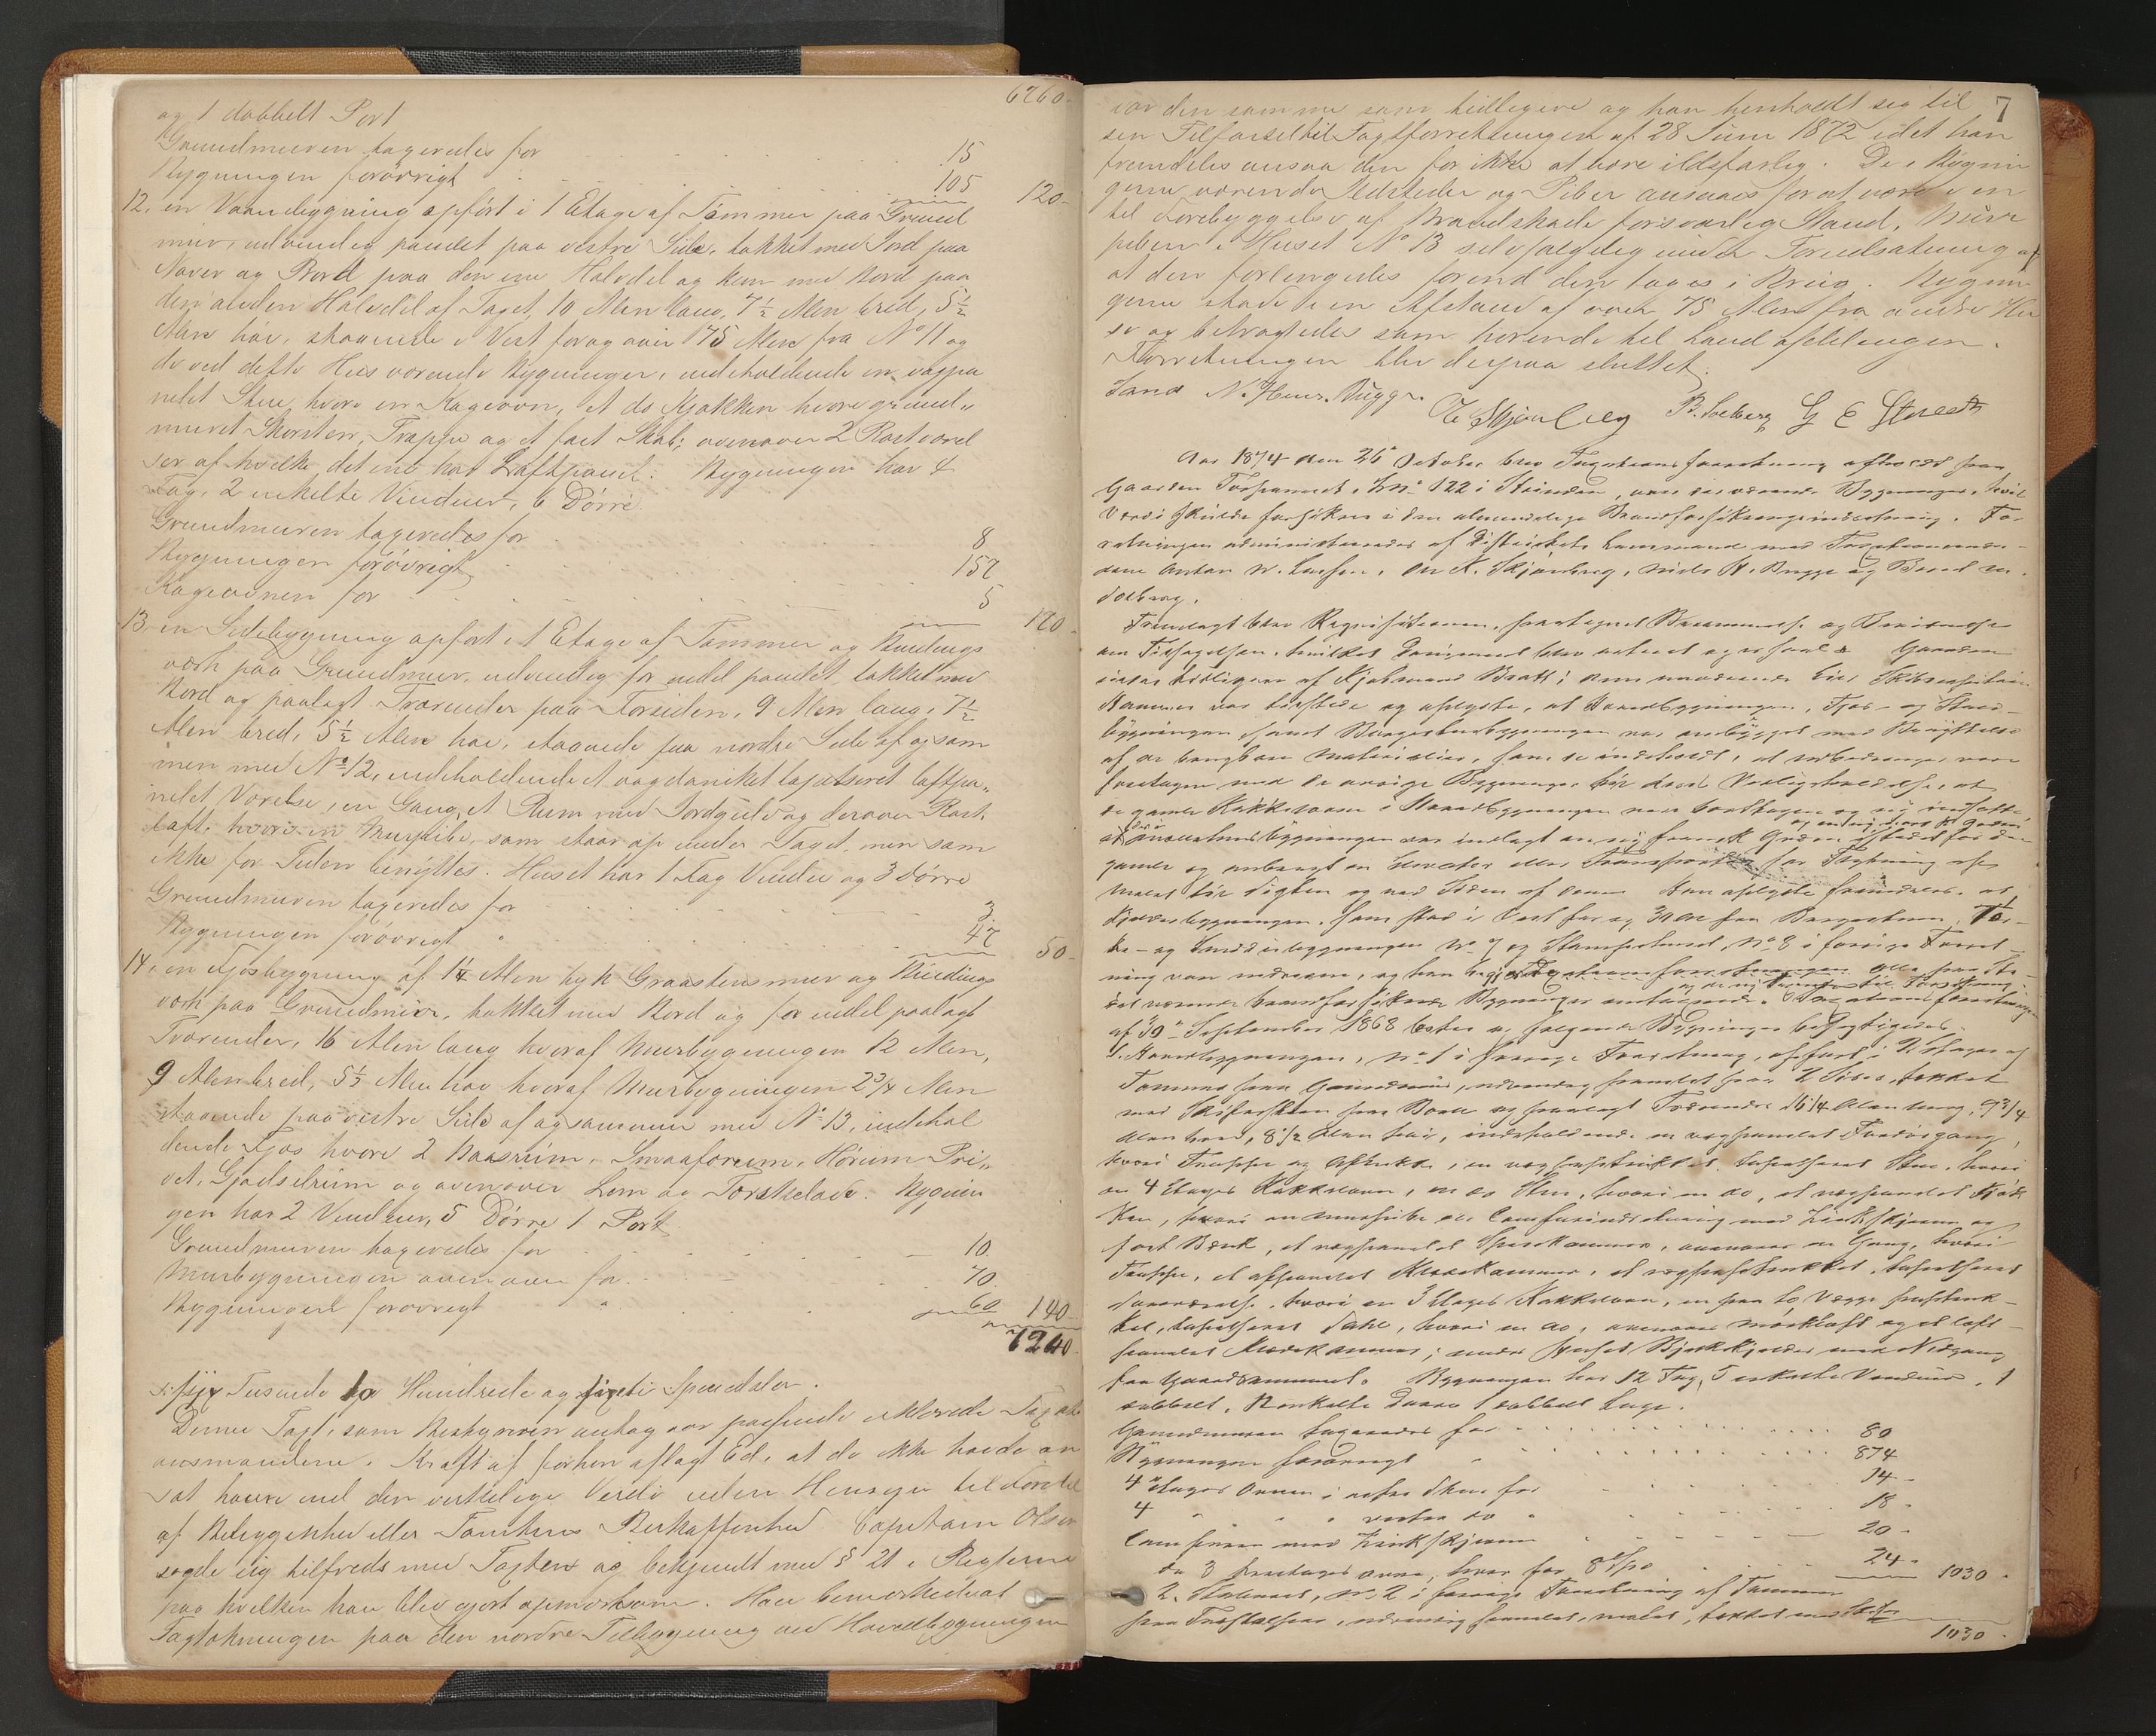 6760.
og 1 dobbelt Port
Grundmuren taxeredes for 15
Bygningen forövrigt 105 120.
12, en Vaanebygning opfört i 1 Etage af Tömmer paa Grund
mur, udvendig panelet paa vestre Side, takket med Jord paa
Næver og Bord paa den ene Halvdel og kun med Bord paa
den anden Halvdel af Taget, 10 Alen lang, 7½ Alen bred, 5½
Alen høi, staaende i Vest for og over 175 Alen fra No 11 og
de ved dette Hus værende Bygninger, indeholdende en vægpa
nelet Stue, hvori en Kageovn, et do Kjøkken hvori grund„
muret Skorsten, Trappe og et fast Skab; ovenover 2 Rostværel
ser af hvilke det ene har Loftpanel. Bygningen har 4
Fag, 2 enkelte Vinduer, 6 Dörre.
Grundmuren taxeredes for 8
Bygningen forövrigt 157
Kageovnen for 5 170.
13 en Sidebygning opfört i 1 Etage af Tömmer og Bindings
værk paa Grundmur, udvendig for endel panelet, takket med
Bord og paalagt Trærender paa Forsiden, 9 Alen lang, 7½
Alen bred, 5½ Alen høi, staaende paa nordre Side af og sam
men med No 12, indeholdende et tapetseret loftpa„
nelet Værelse, en Gang, et Rum med Jordgulv og derover Rost„
loft, hvori en Murpibe, som staar op under Taget, men som
ikke for Tiden benyttes. Huset har 1 Fag Vindue og 3 Dörre
Grundmuren taxeredes for 3
Bygningen forövrigt " 47 50.
14, en Fjøsbygning af 1¼ Alen tyk Graastensmur og Bindings
værk paa Grundmur, takket med Bord og for endel paalagt
Trærender, 16 Alen lang hvoraf Murbygningen 12 Alen,
9 Alen bred, 5½ Alen høi hvoraf Murbygningen 2¾ Alen
staaende paa vestre Side af og sammen med No 13, indehol
dende Fjøs hvori 2 Baasrum, Smaaforum, Hørum Pri„
vet, Gjødselrum og ovenover Lem og Törskelade. Bygnin
gen har 2 Vinduer, 5 Dörre 1 Port
Grundmuren taxeredes for 10.
Murbygningen ovenover for 70.
Bygningen forövrigt " 60 140.
7240.
Syv Tusende to Hundrede og firti Speciedaler.
Denne Taxt, som Bestyreren antog var passende erklærede Taxati
onsmændene, i Kraft af forhen aflagt Ed, at de ikke havde an
sat høiere end den virkelige Værdi uden Hensyn til Fordel
af Beliggenhed eller Tomtens Beskaffenhed Capitain Olsen
sagde sig tilfreds med Taxten og bekjendt med § 21 i Reglerne
paa hvilken han blev gjort opmærksom. Han bemærkede at
Tagtækningen paa den nordre Tilbygning ved Hovedbygningen
7
var den samme som tidligere og han henholdt sig til
sin Tilførsel til Taxtforretningen af 28 Juni 1872 idet han
fremdeles ansaa den for ikke at være ildsfarlig. De i Bygnin
gerne værende Ildsteder og Piber ansaaes for at være i en
til Forebyggelse af Brandskade forsvarlig Stand, Mur
piben i Huset No 13 selvfølgelig under Forudsætning af
at den forlængedes forend den toges i Brug. Bygnin
gerne stode i en Afstand af over 75 Alen fra andre Hu
se og betragtedes som hørende til Landafdelingen.
Forretningen blev derpaa sluttet
Lund N. Henr. Bugge. O. Skjønberg B. Solberg G E
Aar 1874 den 26 October blev Taxationsforretning afholdt paa
Gaarden, L. No 122 i Strinden, over derværende Bygninger, hvis
Værdi skulde forsikres i den almindelige Brandforsikringsindretning. For
retningen administreredes af Distriktets Lensmand med Taxationsmæn
dene Anton W. Larsen, Ole K. Skjønberg, Niels H. Bugge og Bernt M.
Solberg.
Fremlagt blev Requisitionen, paategnet Berammelse og Beviis
om Tilsigelsen, hvilket Document blev oplæst Gaarden
eiedes tidligere af Kjøbmand Bratt; dens nuværende Eier Skibscapitain
Hammer var tilstede og oplyste, at Hovedbygningen, Fjøs- og Stald-
bygningen samt Borgestuebygningen var ombygget med Benyttelse
af de brugbare Materialier, som de indeholdt, at Forbedringer vare
foretagne med de øvrige Bygninger til deres Vedligeholdelse, at
de gamle Kakkelovne i Hovedbygningen vare borttagne og nye indsatte
gamle og anbragt en Elevator eller Transportør for Flytning af
Malet til Sigten og ved Siden af denne Han oplyste fremdeles, at
Kjælderbygningen, som stod i Vest for og 31 Al fra Borgestuen, Tör-
ke- og Smedebygningen No 7 og Stampehuset No 8 i forrige Forret
ning var nedrevne, og han
af 30 September 1868 bøter og følgende Bygninger besigtigedes.
1. Hovedbygningen, No 1 i forrige Forretning, opført i 2 Etager af
Tømmer paa Grundmur, udvendig panelet paa 2 Sider, takket
med Skifersten paa Bord og paalagt Trærender 16¼ Alen lang, 9¾
Alen bred, 8½ Alen høi, indeholdende en vægpanelet Forstuegang,
hvori Trappe og Aftrækte, en tapetseret Stue, hvori
en 4 Etages Kakkelovn, en do Stue, hvori en do, et vægpanelet Kjøk
ken, hvori en Murpibe, en Comfurindretning med Zinkskjerm og
fast Bænk, et vægpanelet Spisekammer, ovenover en Gang, hvori
Trappe, et afpanelet Klædekammer, et vægpaptrukket, tapetseret
Soveværelse, hvori en 3 Etages Kakkelovn, en paa to Vægge paptruk-
ket, tapetseret Sahl, hvori en do, ovenover Mørkloft og et loft
panelet Klædekammer; under Huset Bjelkekjelder med Nedgang
fra Gaardsrummet. Bygningen har 12 Fag, 5 enkelte Vinduer, 1
dobbelt, enkelte Dørre 1 dobbelt Luge.
Grundmuren taxeredes for 80
Bygningen forøvrigt " 874
4 Etages Ovnen i østre Stue for 14-
4 " " " vestre do " 18 -
Comfuren med Zinkskjerm 20-
do 3 Etages Ovne, hver for 8 Spd 24- 1030.
2. Staburet, No 2 i forrige Forretning af Tømmer
paa Træstolper, udvendig panelet, malet, takket med
1030.